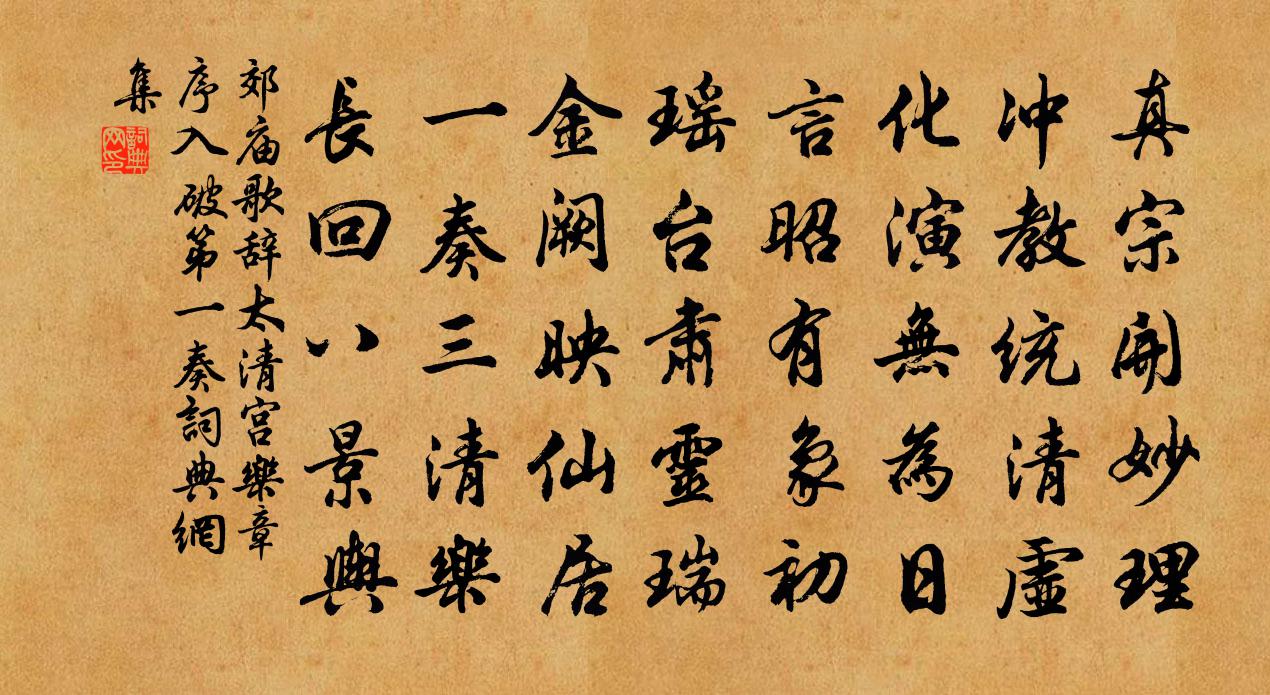 真宗開妙理
冲教統清虛
化演無為日
言昭有象初
瑶台肅靈瑞
金闕映仙居
一奏三清樂
長回八景輿
郊庙歌辞太清宮樂章
序入破第一奏詞典網
集
詞典网印